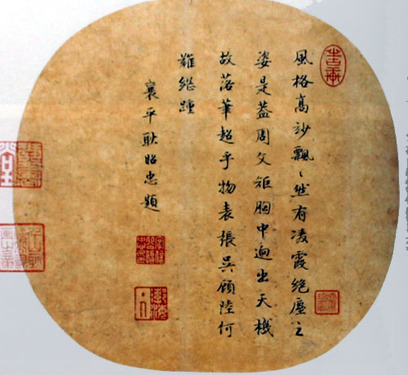 風格高玅飄〻然有凌霞絕塵之
姿是蓋周文矩胸中迥出天機
故落筆超乎物表張吳顧陸何
難繼踵
襄平耿昭忠題